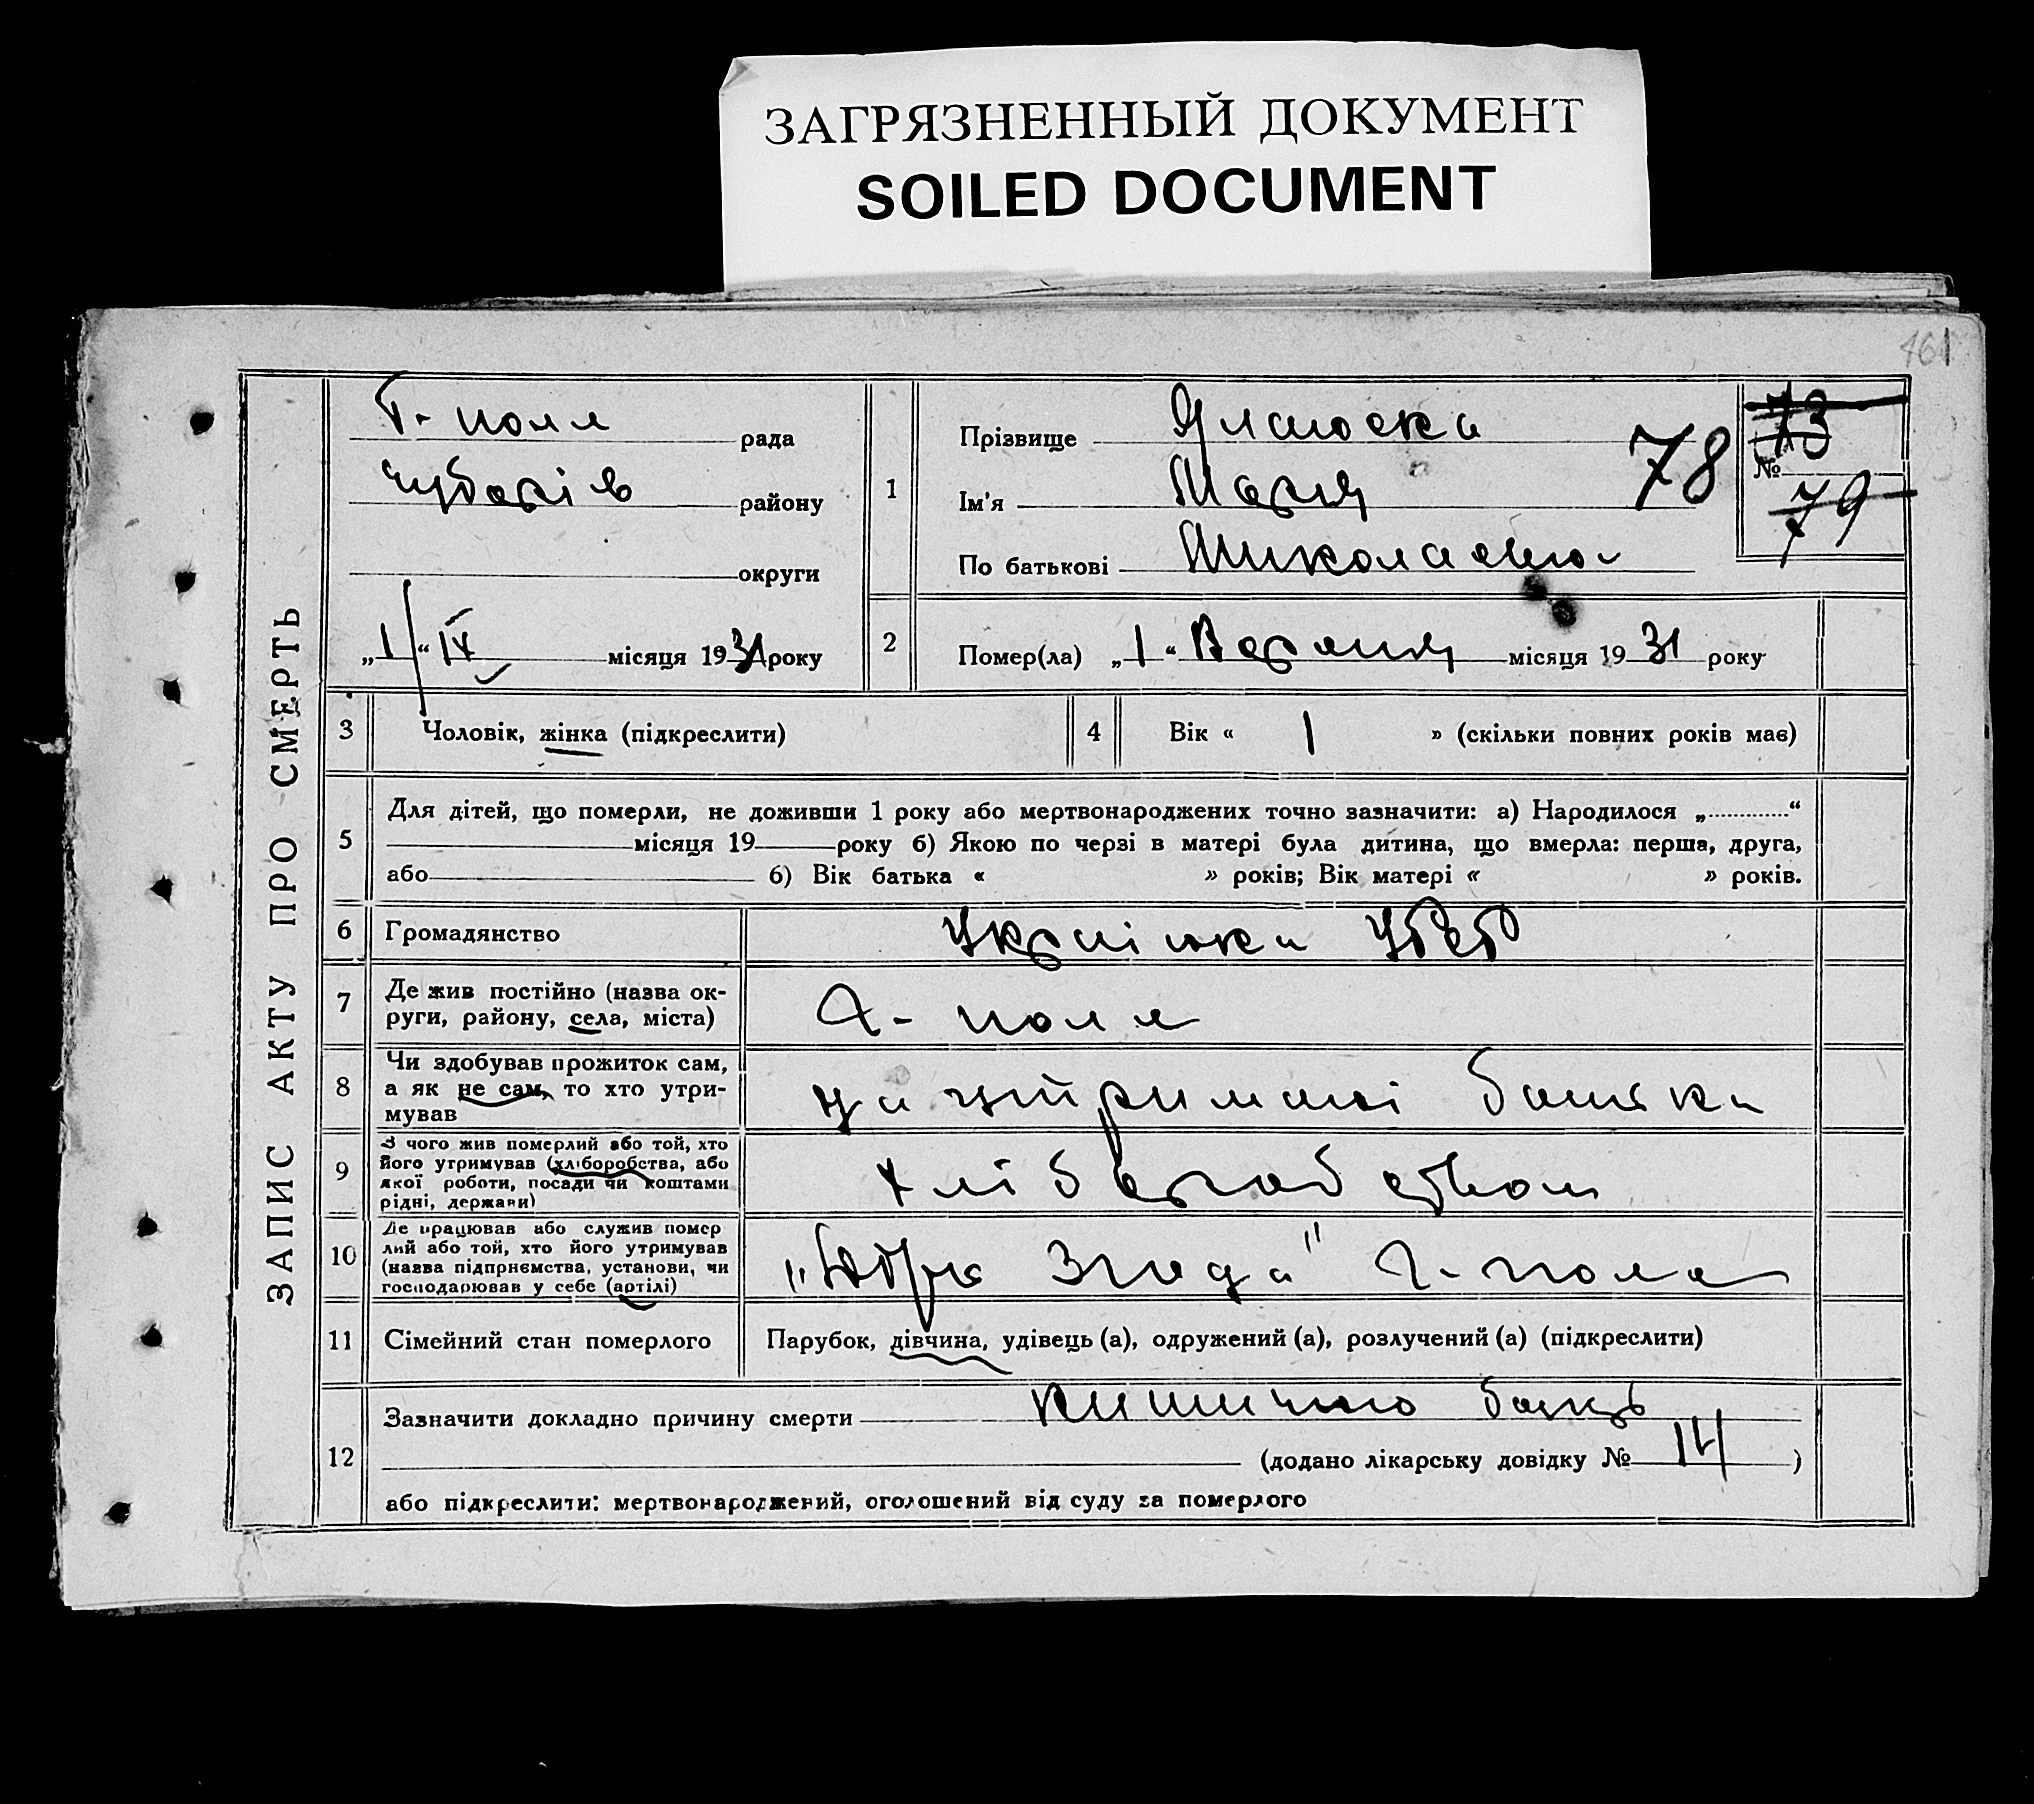 ЗАГРЯЗНЕННЫЙ ДОКУМЕНТ
SOILED DOCUMENT
461
ЗАПИС АКТУ ПРО СМЕРТЬ
Г-поля рада
Чубарів району
округи
„1“ IX місяця 1931 року
1 Прізвище
Ім'я Марія
По батькові Миколаевна
78
73
№
79
2 Помер(ла) „1“ Вересня місяця 1931 року
3 Чоловік, жінка (підкреслити)
4 Вік « 1 » (скільки повних років має)
5 Для дітей, що померли, не доживши 1 року або мертвонароджених точно зазначити: а) Народилося „............“
місяця 19 року б) Якою по черзі в матері була дитина, що вмерла: перша, друга,
або б) Вік батька « » років; Вік матері « » років.
6 Громадянство Українка УСРР
7 Де жив постійно (назва ок-
руги, району, села, міста)
Г-поля
8 Чи здобував прожиток сам,
а як не сам, то хто утри-
мував
на утриманні батька
9 З чого жив померлий або той, хто
його утримував (хліборобства, або
якої роботи, посади чи коштами
рідні, держави)
хліборобством
10 Де працював або служив помер
лий або той, хто його утримував
(назва підприємства, установи, чи
господарював у себе (артілі)
Згода" Г-поля
11 Сімейний стан померлого Парубок, дівчина, удівець (а), одружений (а), розлучений (а) (підкреслити)
12 Зазначити докладно причину смерти
(додано лікарську довідку № 14 )
або підкреслити: мертвонароджений, оголошений від суду за померлого